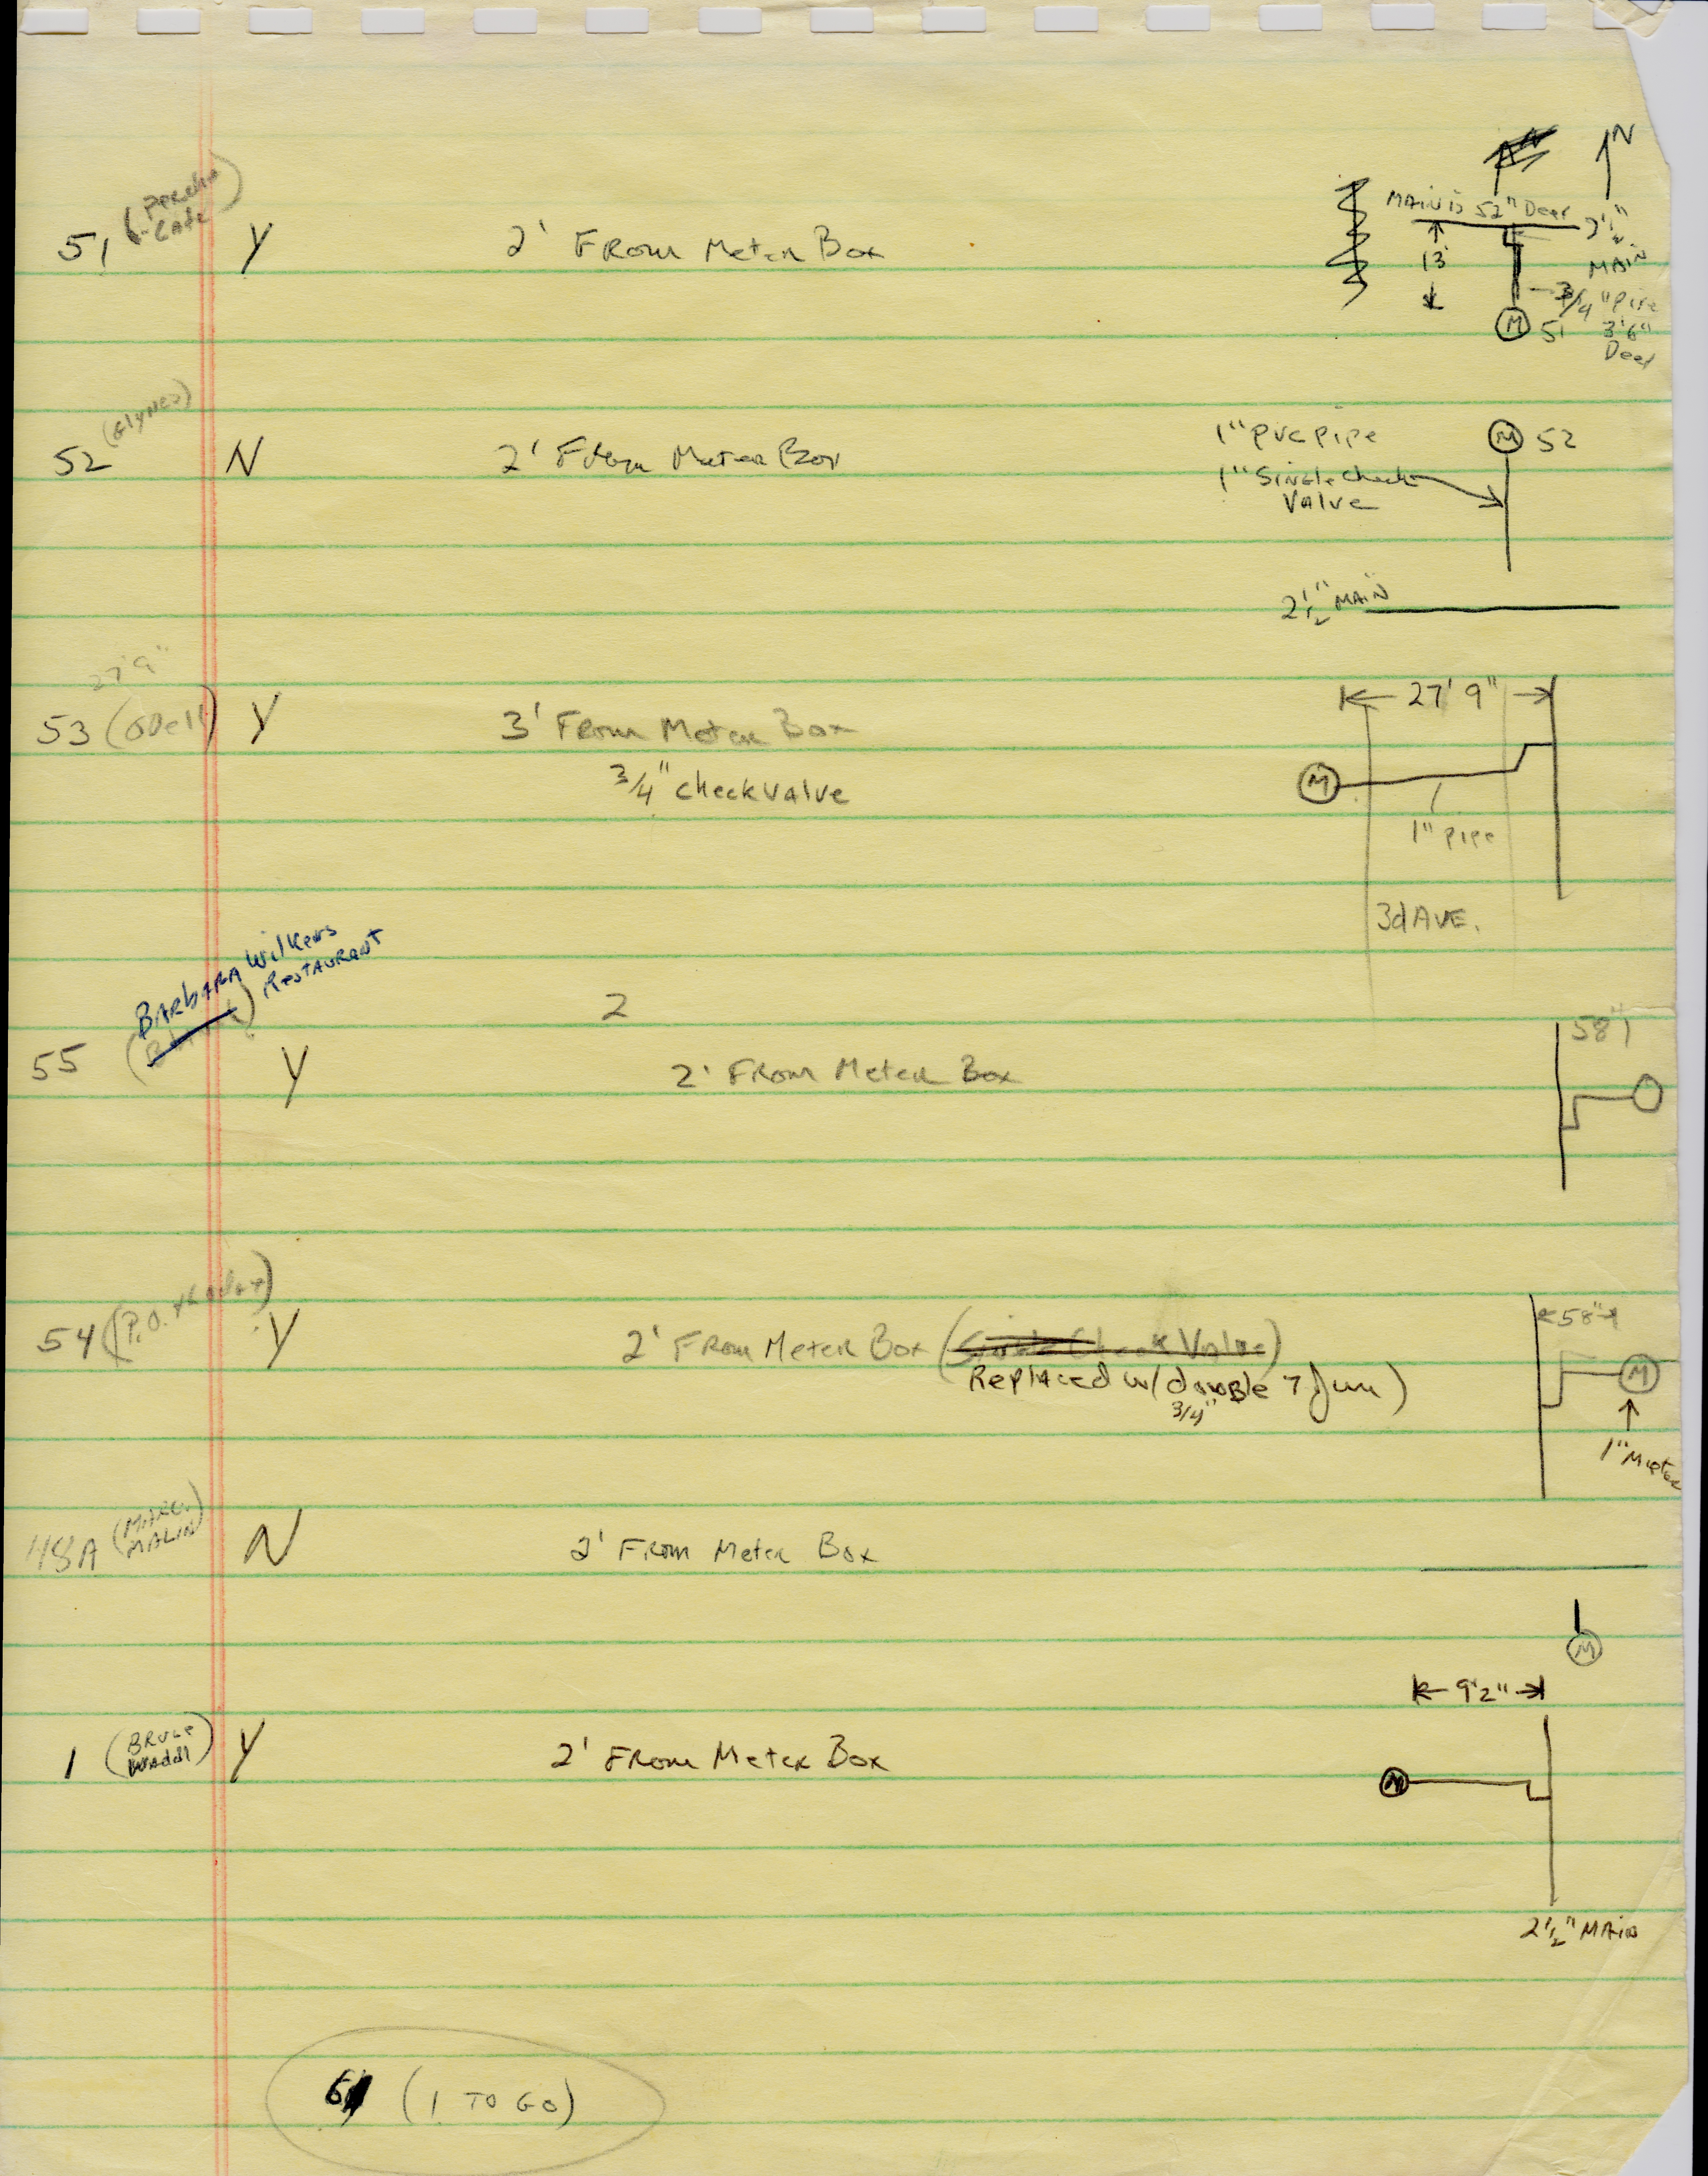 N
MAIN IS 52" Deep
2½"
MAIN
13'
3/4" Pipe
51 (Percha
Cafe)
Y
2' From Meter Box
M 51
3'6"
Deep
(Glynes)
52
N
2' From Meter Box
1" PVC PIPE
M 52
1" Single Check
Valve
2½" MAIN
27'9"
53 (Odell)
Y
3' From Meter Box
3/4" check valve
27' 9"
M
1" Pipe
3d AVE.
BARBARA Wilkens
Restaurant
2
55
Y
2' From Meter Box
58"
54
Y
2' From Meter Box (Single Check Valve)
Replaced w/ double 7 Jun)
3/4"
58"
M
1" Meter
48A (MARC.
MALIN)
N
2' From Meter Box
M
9'2"
1 (BRUCE
Waddl)
Y
2' From Meter Box
M
2½" MAIN
6 (1 TO GO)